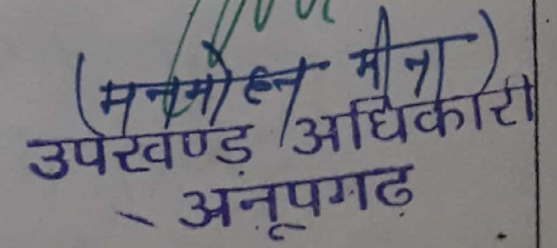 (मनमोहन मीना)
उपखण्ड अधिकारी
अनूपगढ